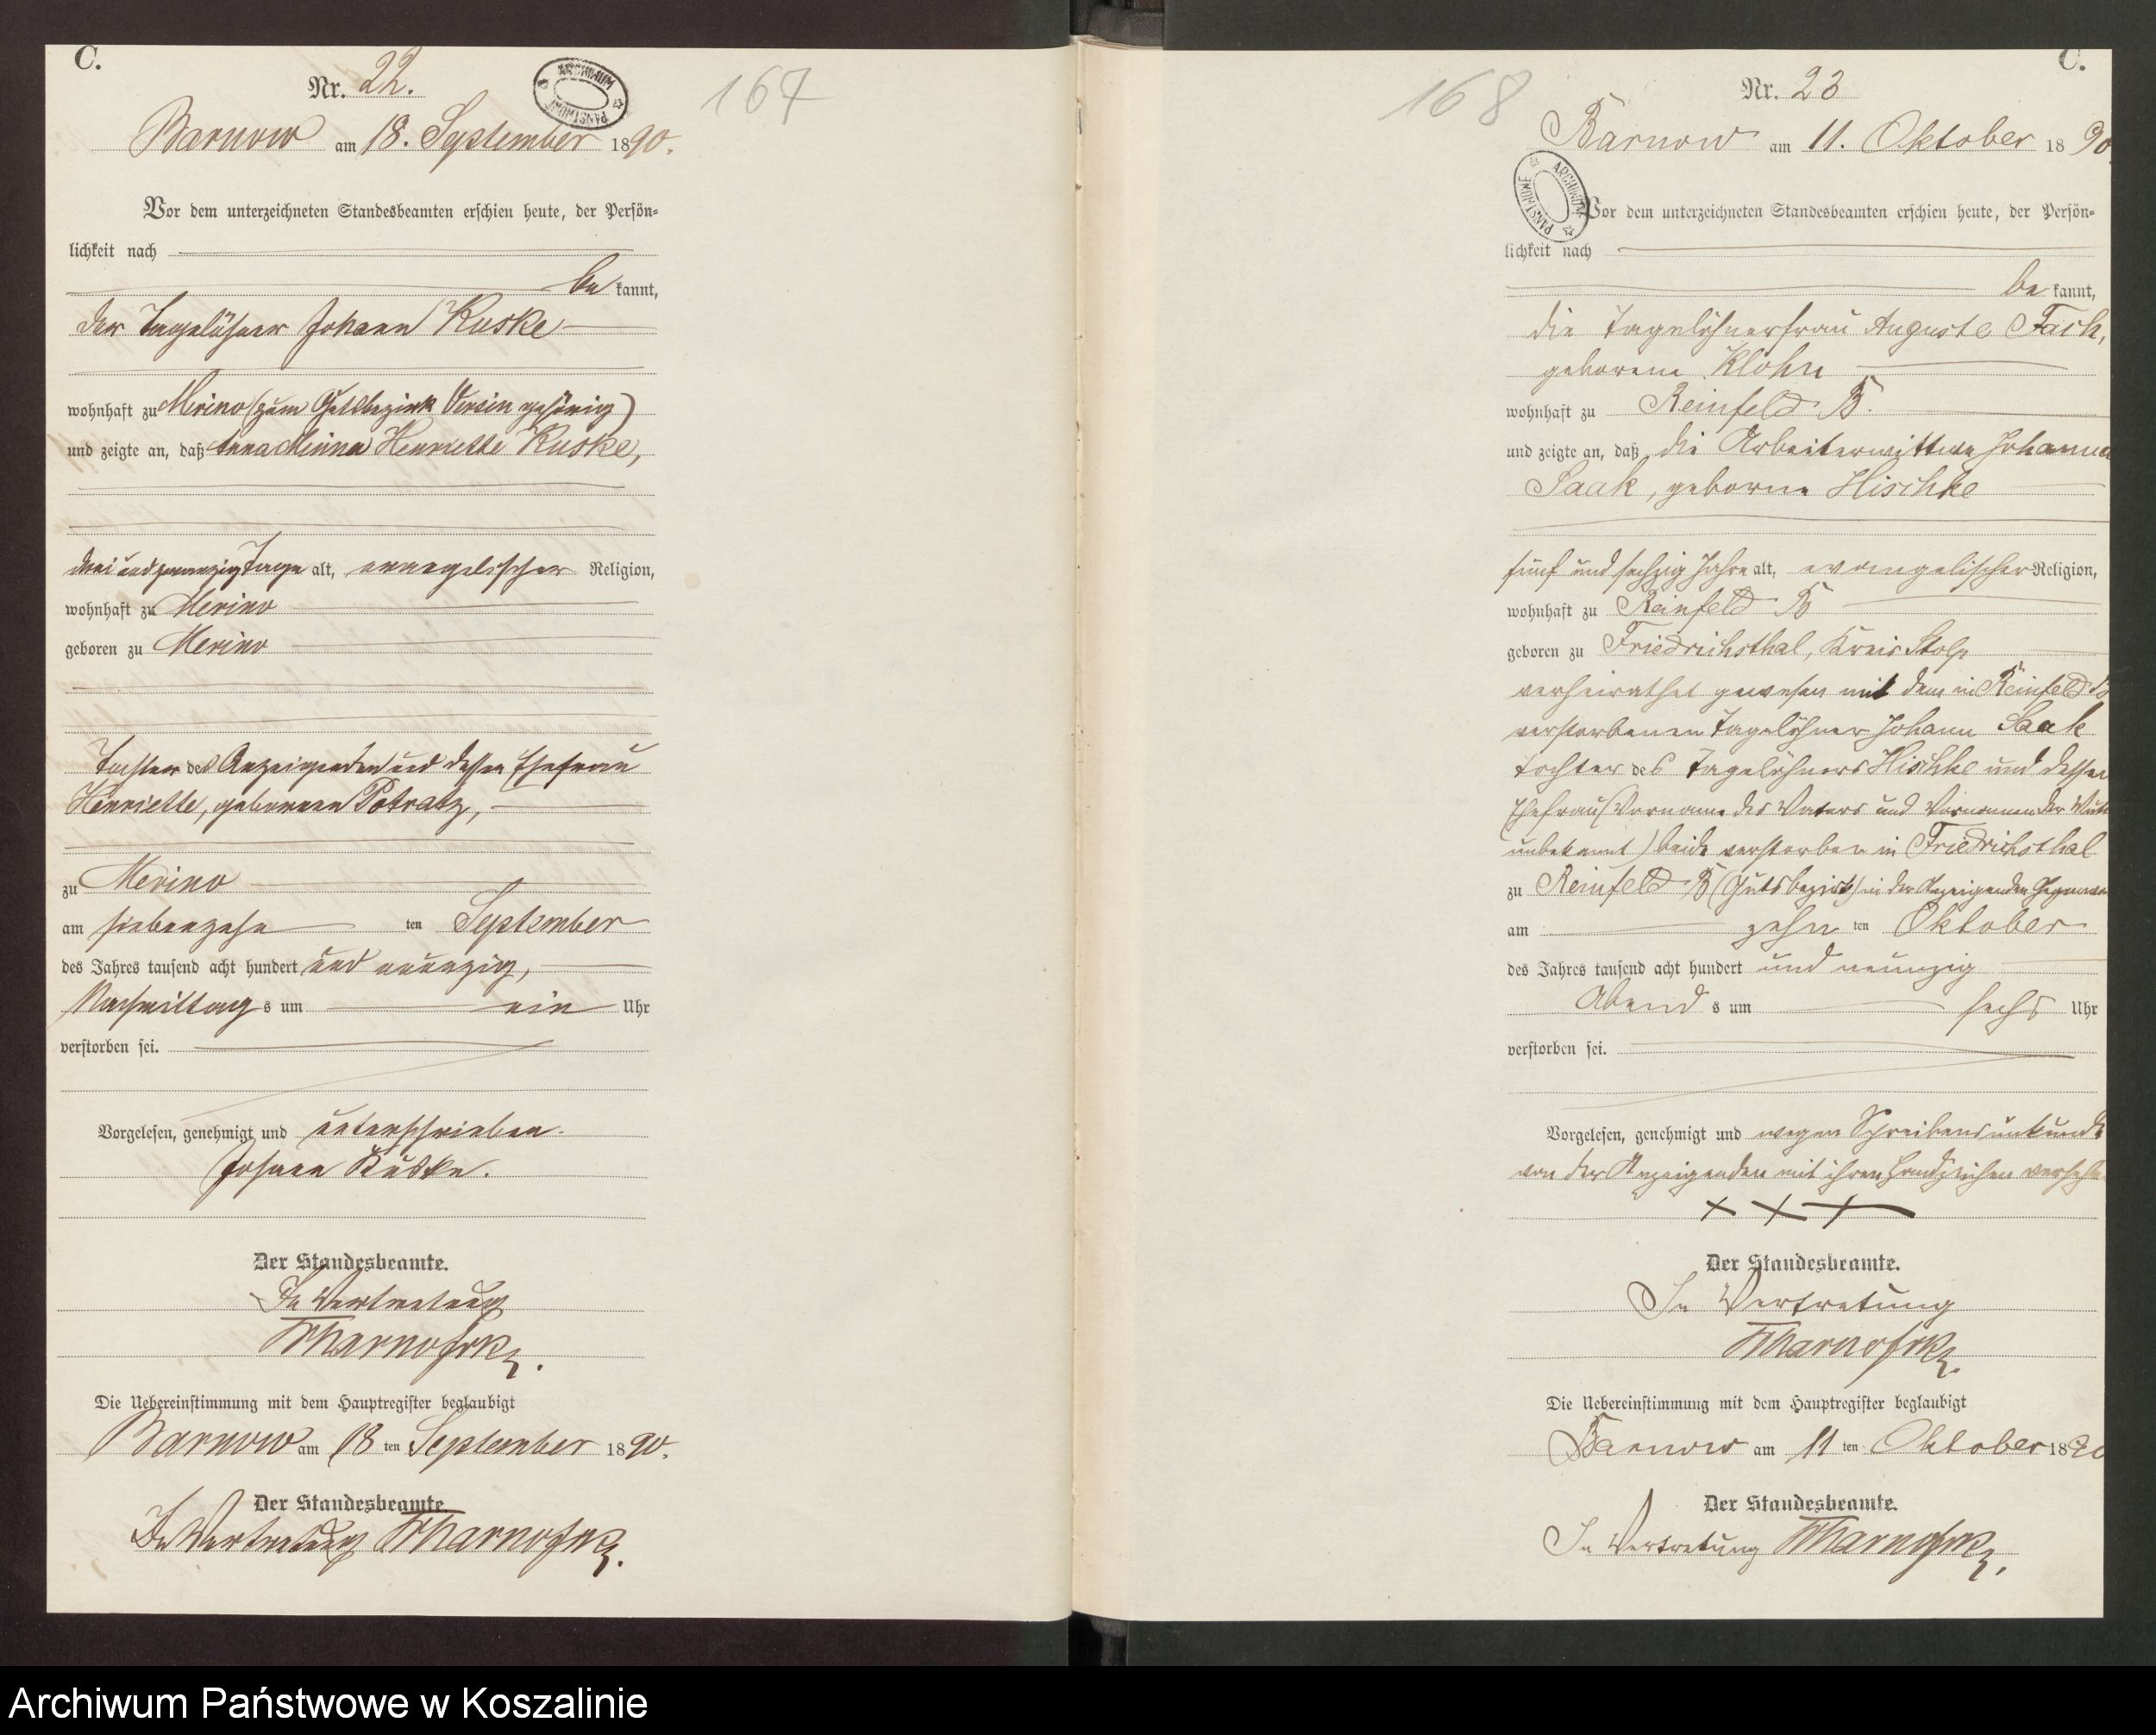 C.
Nr. 22.
ARCHIWUM PAŃSTWOWE
167
Barnow am 18. September 1890.
Vor dem unterzeichneten Standesbeamten erschien heute, der Persön-
lichkeit nach
be kannt,
der Tagelöhner Johann Kuske
wohnhaft zu Merino (zum Gutsbezirk Versin gehörig)
und zeigte an, daß Anna Minna Henriette Kuske,
drei und zwanzig Tage alt, evangelischer Religion,
wohnhaft zu Merino
geboren zu Merino
Tochter des Anzeigenden und dessen Ehefrau
Henriette, geborenen Potratz,
zu Merino
am siebenzehn ten September
des Jahres tausend acht hundert und neunzig,
Nachmittag s um ein Uhr
verstorben sei.
Vorgelesen, genehmigt und unterschrieben.
Johann Kuske.
Der Standesbeamte.
In Vertretung
Die Uebereinstimmung mit dem Hauptregister beglaubigt
Barnow am 18 ten September 1890.
Der Standesbeamte
In Vertretung
C.
Nr. 23
168
Barnow am 11. Oktober 1890
ARCHIWUM PAŃSTWOWE
Vor dem unterzeichneten Standesbeamten erschien heute, der Persön-
lichkeit nach
be kannt,
die Tagelöhnerfrau Auguste Fach,
geborene Klohn
wohnhaft zu Reinfeld B.
und zeigte an, daß die Arbeiterwittwe Johanna
Saak, geborne Hischke
fünf und sechzig Jahre alt, evangelischer Religion,
wohnhaft zu Reinfeld B
geboren zu Friedrichsthal, Kreis Stolp
verheirathet gewesen mit dem in Reinfeld B
verstorbenen Tagelöhner Johann Saak
Tochter des Tagelöhners Hischke und dessen
Ehefrau (Vorname des Vaters und Vornamen der Mutt
unbekannt) beide verstorben in Friedrichsthal
zu Reinfeld B (Gutsbezirk) in der Anzeigenden Gegenwart
am zehn ten Oktober
des Jahres tausend acht hundert und neunzig
Abend s um sechs Uhr
verstorben sei.
Vorgelesen, genehmigt und wegen Schreibensunkunde
von der Anzeigenden mit ihren Handzeichen versehen
+ + +
Der Standesbeamte.
In Vertretung
Die Uebereinstimmung mit dem Hauptregister beglaubigt
Barnow am 11 ten Oktober 1890
Der Standesbeamte.
In Vertretung
Archiwum Państwowe w Koszalinie